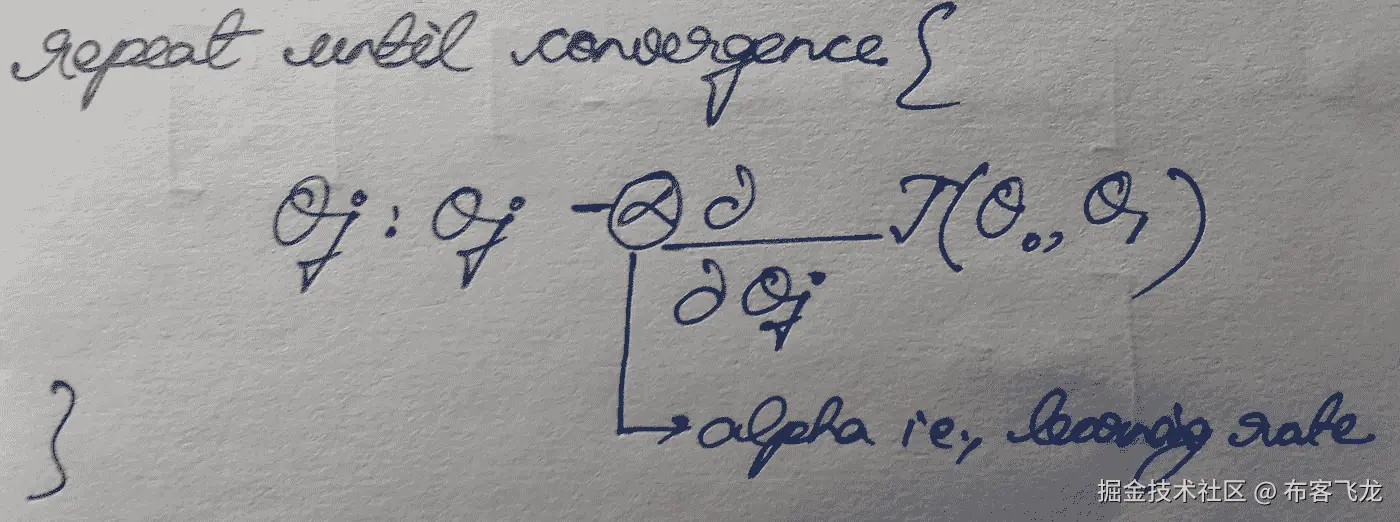 repeat until convergence {
θj : θj - α ∂/∂θj J(θ₀, θ₁)
}
alpha ie., learning rate
掘金技术社区 @ 布客飞龙